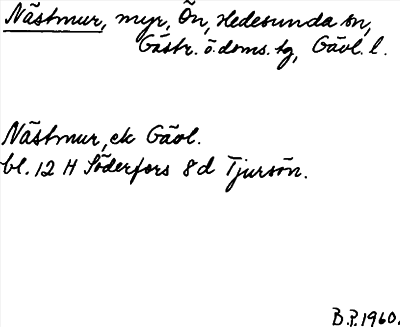 Nästmur, myr, Ön, Hedesunda sn,
Gästr. ö. doms. tg, Gävl. l.
Nästmur, ek Gävl.
bl. 12 H Söderfors 8 d Tjursön.
B.P. 1960.